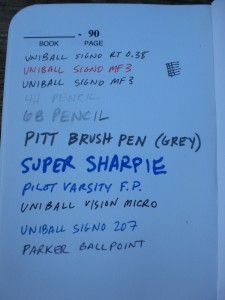 - 90
BOOK PAGE
UNIBALL SIGNO RT 0.38
UNIBALL SIGNO MF3
UNIBALL SIGNO MF3
4H PENCIL
6B PENCIL
PITT BRUSH PEN (GREY)
SUPER SHARPIE
PILOT VARSITY F.P.
UNIBALL VISION MICRO
UNIBALL SIGNO 207
PARKER BALLPOINT